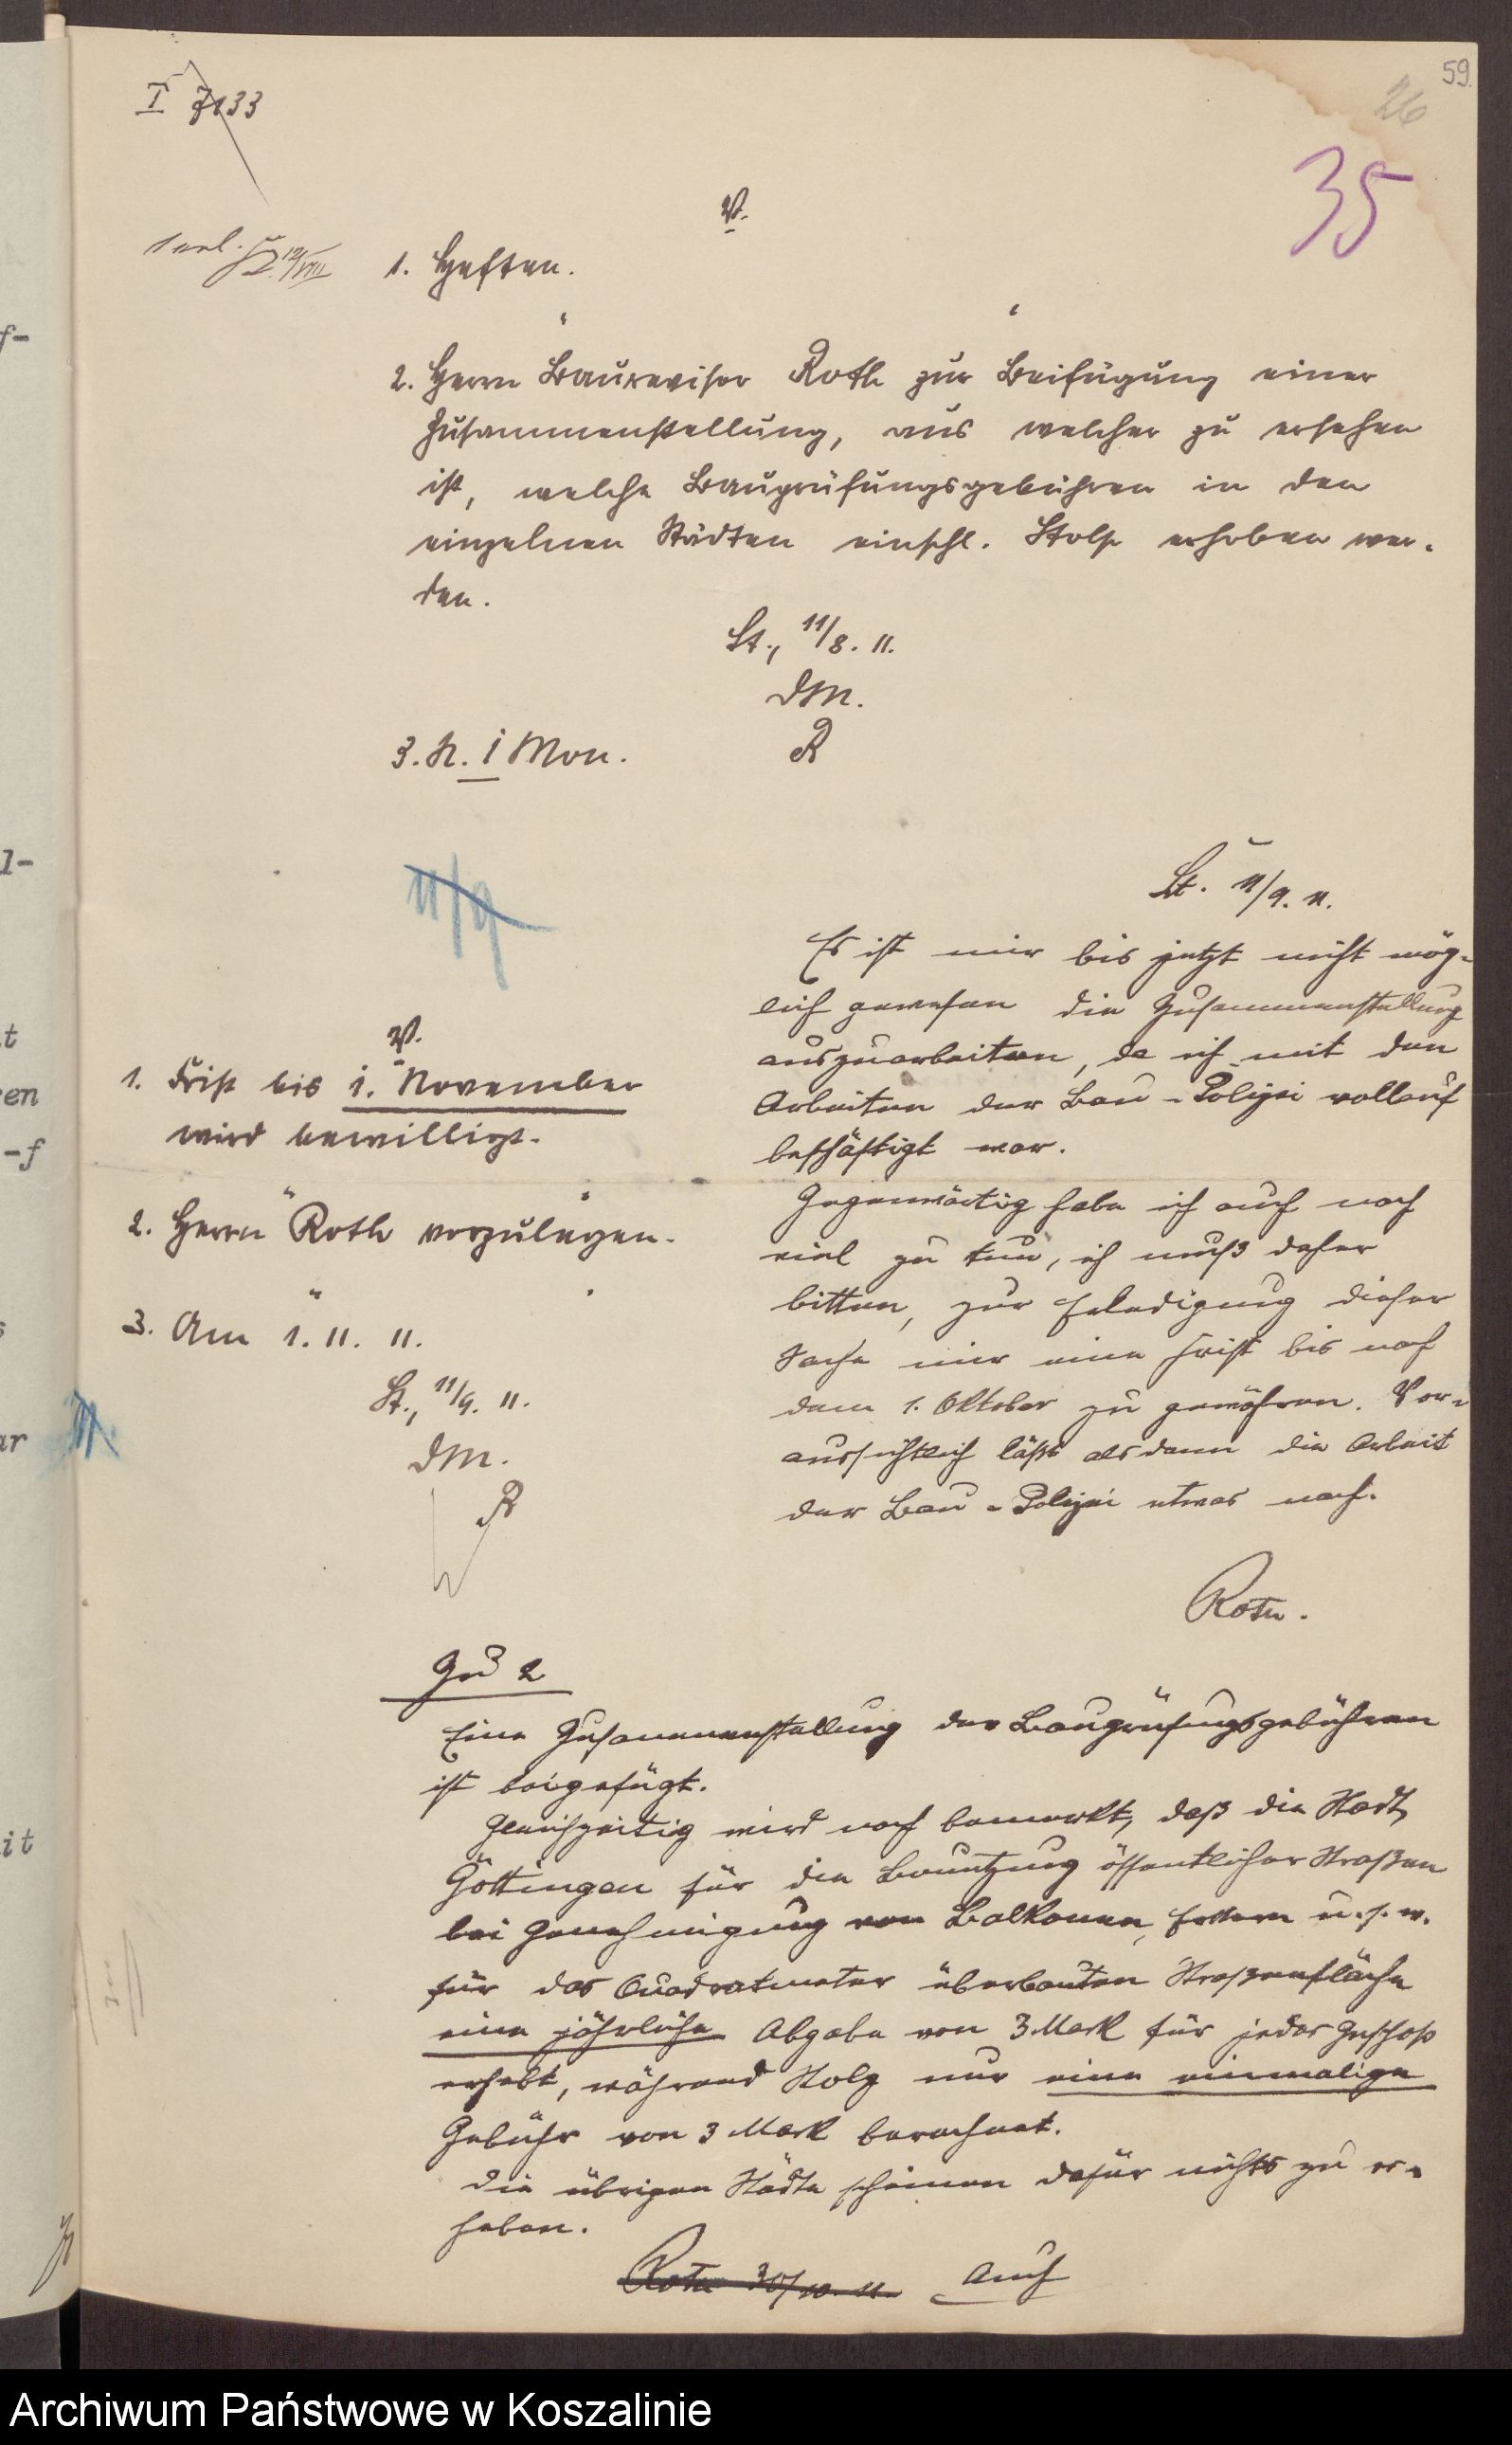 59.
26
35
I 7133
V.
1. Heften.
2. Herrn Baurevisor Roth zur Beifügung einer
Zusammenstellung, aus welcher zu ersehen
ist, welche Bauprüfungsgebühren in den
einzelnen Städten einschl. Stolp erhoben wer-
den.
St., 11/8. 11.
DM.
R
3. N. 1 Mon.
11/9
St. 11/9. 11.
Es ist mir bis jetzt nicht mög-
lich gewesen die Zusammenstellung
auszuarbeiten, da ich mit den
Arbeiten der Bau-Polizei vollauf
beschäftigt war.
Gegenwärtig habe ich auch noch
viel zu tun, ich muß daher
bitten, zur Erledigung dieser
Sache mir eine Frist bis nach
dem 1. Oktober zu gewähren. Vor-
aussichtlich läßt alsdann die Arbeit
der Bau-Polizei etwas nach.
Roth.
V.
1. Frist bis 1. November
wird bewilligt.
2. Herrn Roth vorzulegen.
3. Am 1. 11. 11.
St., 11/9. 11.
DM.
R
Zu 2
Eine Zusammenstellung der Bauprüfungsgebühren
ist beigefügt.
Gleichzeitig wird noch bemerkt, daß die Stadt
Göttingen für die Benutzung öffentlicher Straßen
bei Genehmigung von Balkonen, Erkern u. s. w.
für das Quadratmeter überbauten Straßenfläche
eine jährliche Abgabe von 3 Mark für jedes Geschoß
erhebt, während Stolp nur eine einmalige
Gebühr von 3 Mark berechnet.
Die übrigen Städte scheinen dafür nichts zu er-
heben.
Roth 30/10. 11. Auch
Archiwum Państwowe w Koszalinie